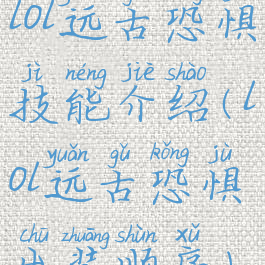 lol远古恐惧
jì néng jiè shào
技能介绍(l
yuǎn gǔ kǒng jù
ol远古恐惧
chū zhuāng shùn xǔ
出装顺序)